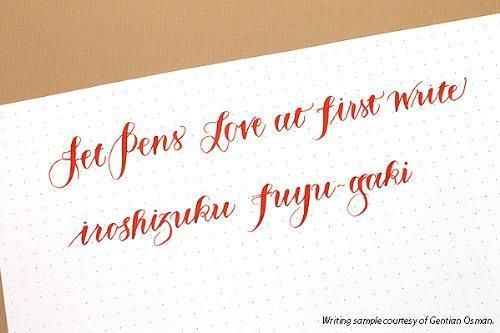 Jet Pens Love at first write
iroshizuku fuyu-gaki
Writing sample courtesy of Gentian Osman.